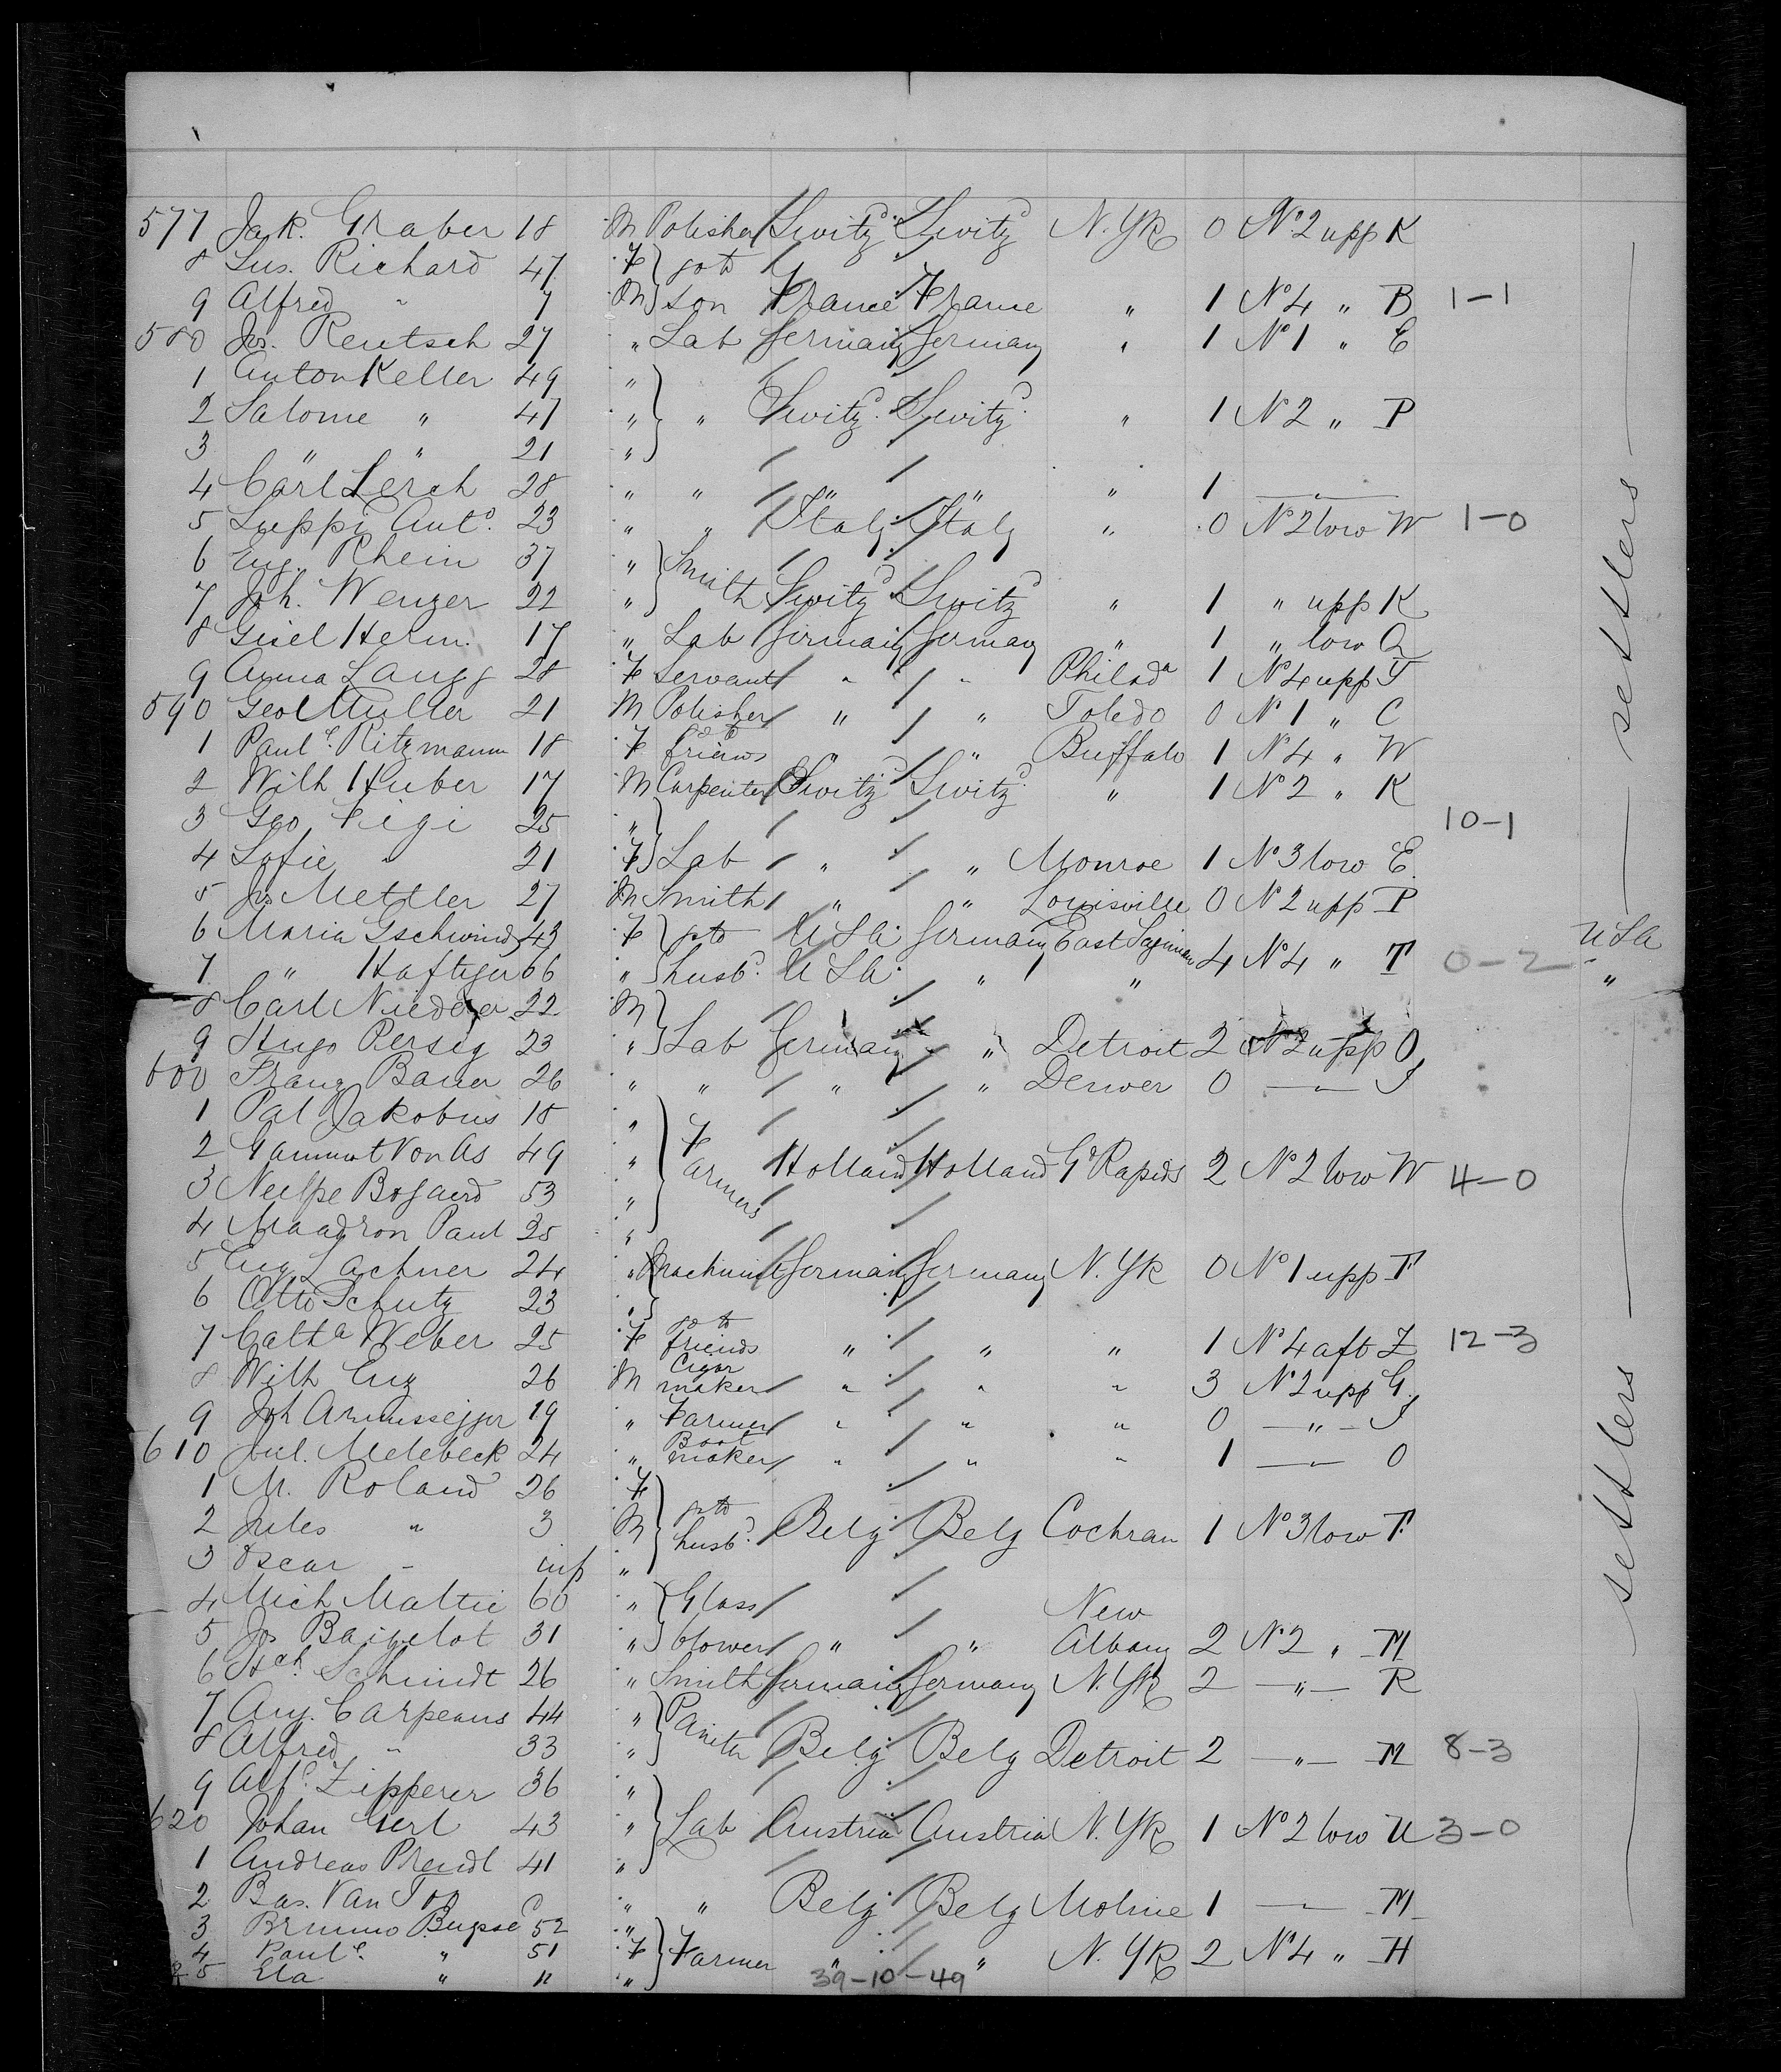 577 Jak. Graber 18 M Polisher Switzd. Switzd N.Yk 0 No 2 upp K
8 Lus. Richard 47 F } goto
9 Alfred " 7 M } son France France " 1 No 4 " B 1-1
580 Jos. Rentsch 27 " Lab Germany Germany " 1 No 1 " E
1 Anton Keller 49 "
2 Salome " 47 " } " Switzd. Switzd. " 1 No 2 " P
3 " " 21 "
4 Carl Lerch 28 " " " " " 1 "
5 Luppi Anto. 23 " " Italy Italy " 0 No 2 low W 1-0
6 Eug. Rhein 37 "
7 Joh. Wenger 22 " } Smith Switzd Switzd " 1 " upp K
8 Gisel Herm. 17 " Lab Germany Germany " 1 " low Q
9 Anna Langg 28 F Servant " " Philada 1 No 4 upp T
590 Geo Müller 21 M Polisher " " Toledo 0 No 1 " C
1 Paule. Ritzmann 18 F to friends " " Buffalo 1 No 4 " W
2 Wilh Huber 17 M Carpenter Switzd Switzd. " 1 No 2 " K
3 Geo Figi 25 " 10-1
4 Sofie " 21 F } Lab " " Monroe 1 No 3 low E
5 Js Mettler 27 M Smith " " Louisville 0 No 2 upp P
6 Maria Gschwind 43 F } goto USA Germany East Saginaw USA
7 " Haftiger 66 " } husbd. USA. " " 4 No 4 " T 0-2 "
8 Carl Niederer 22 M
9 Hugo Persig 23 " } Lab Germany " Detroit 2 No 2 upp O
600 Franz Bauer 26 " " " " Denver 0 " I
1 Pal Jakobus 18 "
2 Gammat Von As 49 " } Farmers Holland Holland Gd Rapids 2 No 2 low W 4-0
3 Bogaerd 53 "
4 Paul 25 "
5 Eug Lachner 24 " Machinist Germany Germany N.Yk 0 No 1 upp F
6 Otto Schutz 23 "
7 Catha Weber 25 F goto friends " " " 1 No 4 aft Z 12-3
8 Wilh Enz 26 M Cigar maker " " " 3 No 2 upp G
9 Joh 19 " Farmer " " " 0 " I
610 Jul. Melebeck 24 " Boot maker " " " 1 " O
1 M. Roland 26 F
2 Jules " 3 M } goto husbd. Belg Belg Cochran 1 No 3 low F
3 Oscar " inf "
4 Mich Mattie 60 " } Glass New
5 Js Baigelot 31 " } blower " " Albany 2 No 2 " M
6 Hch. Schmidt 26 " Smith Germany Germany N.Yk 2 " R
7 Aug. Carpeaus 44 "
8 Alfred " 33 " } Painter Belg Belg Detroit 2 " M 8-3
9 Zipperer 36 "
620 Johan Gerl 43 " } Lab Austria Austria N.Yk 1 No 2 low U 3-0
1 Andreas Prendl 41 "
2 Bas. Van Top " " Belg Belg Moline 1 " M
3 Brunno 52 "
4 Paule. " 51 F } Farmer " " N.Yk 2 No 4 " H
5 Ela " 11 "
39-10-49
settlers
settlers